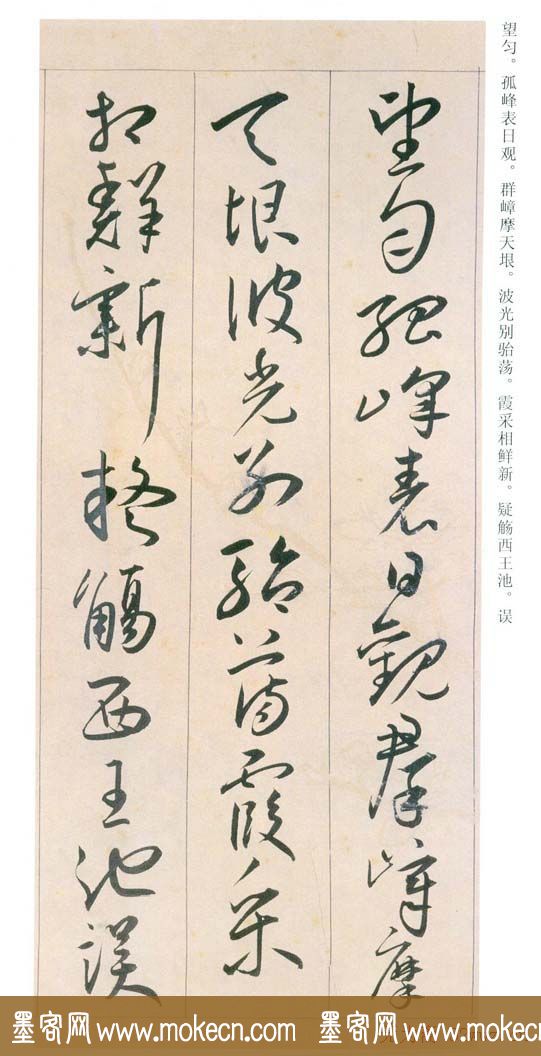 望匀。孤峰表日观。群嶂摩天垠。波光别骀荡。霞采相鲜新。疑觞西王池。误
望匀孤峰表日觀群嶂摩
天垠波光别駘蕩霞采
相鮮新疑觴西王池誤
墨客网 www.mokecn.com 墨客网 www.mokecn.com